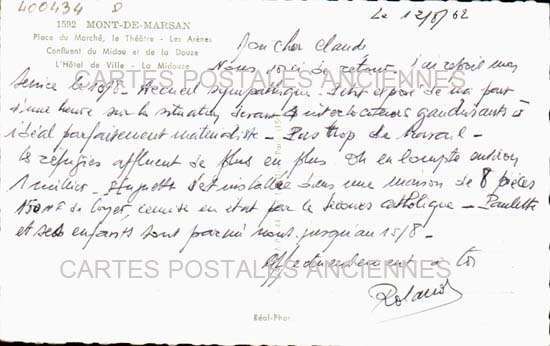 400434 D
1592 MONT-DE-MARSAN
Place du Marché, le Théâtre - Les Arènes
Confluent du Midou et de la Douze
L'Hôtel de Ville - La Midouze
Le 12/8/62
Mon cher Claude
Nous voici de retour. J'ai repris mon
service le 10/8 - Accueil sympathique. Petit exposé de ma part
d'une heure sur la situation devant interlocuteurs à
idéal parfaitement matérialiste - Pas trop de travail -
Les réfugiés affluent de plus en plus On en compte environ
1 millier - Huguette s'est installée dans une maison de 8 pièces
150 NF de loyer, remise en état par le secours catholique - Paulette
et ses enfants sont parmi nous jusqu'au 15/8 -
Affectueusement à toi
Roland
CARTES POSTALES ANCIENNES
CARTES POSTALES ANCIENNES
Réal-Phot